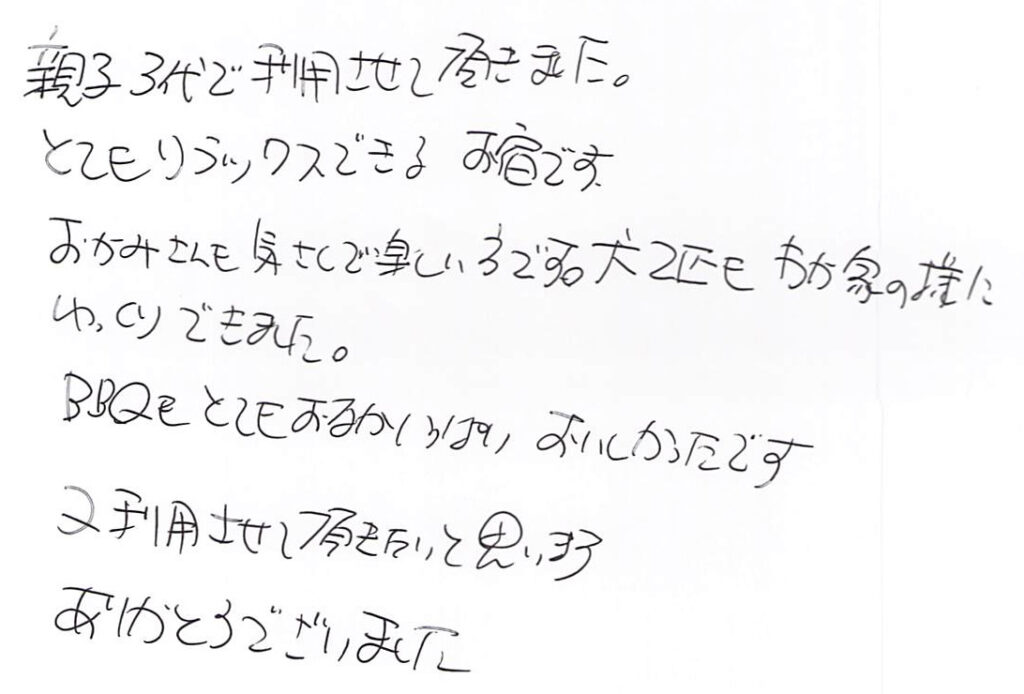 親子3代で利用させて頂きました。
とてもリラックスできる お宿です
おかみさんも気さくで楽しい方です。犬2匹も わが家の様に
ゆっくりできました。
BBQも とてもお おいしかったです
又利用させて頂きたいと思います
ありがとうございました